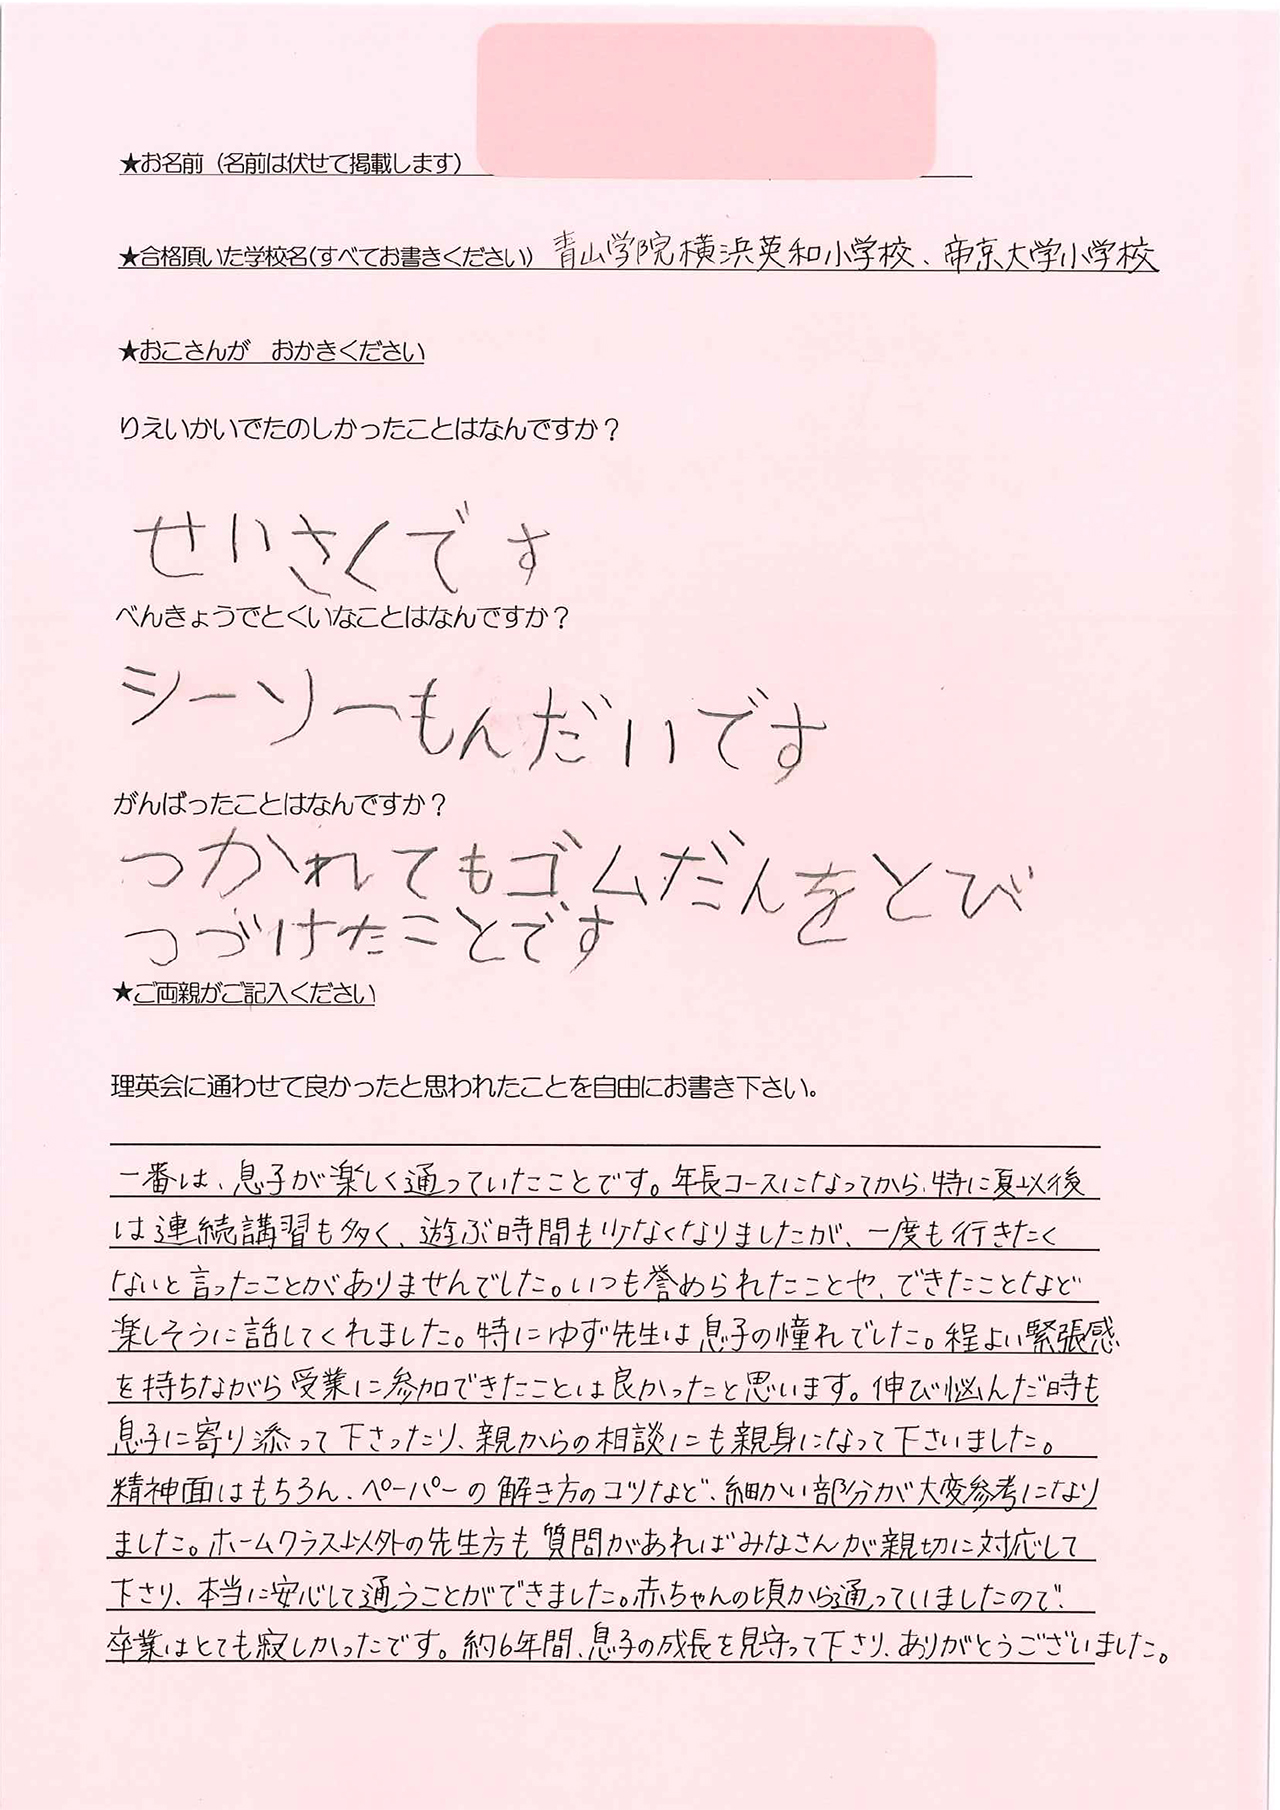 ★お名前（名前は伏せて掲載します）
★合格頂いた学校名(すべてお書きください) 青山学院横浜英和小学校、帝京大学小学校
★おこさんが　おかきください
りえいかいでたのしかったことはなんですか？
せいさくです
べんきょうでとくいなことはなんですか？
シーソーもんだいです
がんばったことはなんですか？
つかれてもゴムだんをとび
つづけたことです
★ご両親がご記入ください
理英会に通わせて良かったと思われたことを自由にお書き下さい。
一番は、息子が楽しく通っていたことです。年長コースになってから、特に夏以後
は連続講習も多く、遊ぶ時間も少なくなりましたが、一度も行きたく
ないと言ったことがありませんでした。いつも誉められたことや、できたことなど
楽しそうに話してくれました。特にゆず先生は息子の憧れでした。程よい緊張感
を持ちながら受業に参加できたことは良かったと思います。伸び悩んだ時も
息子に寄り添って下さったり、親からの相談にも親身になって下さいました。
精神面はもちろん、ペーパーの解き方のコツなど、細かい部分が大変参考になり
ました。ホームクラス以外の先生方も質問があればみなさんが親切に対応して
下さり、本当に安心して通うことができました。赤ちゃんの頃から通っていましたので、
卒業はとても寂しかったです。約6年間、息子の成長を見守って下さり、ありがとうございました。